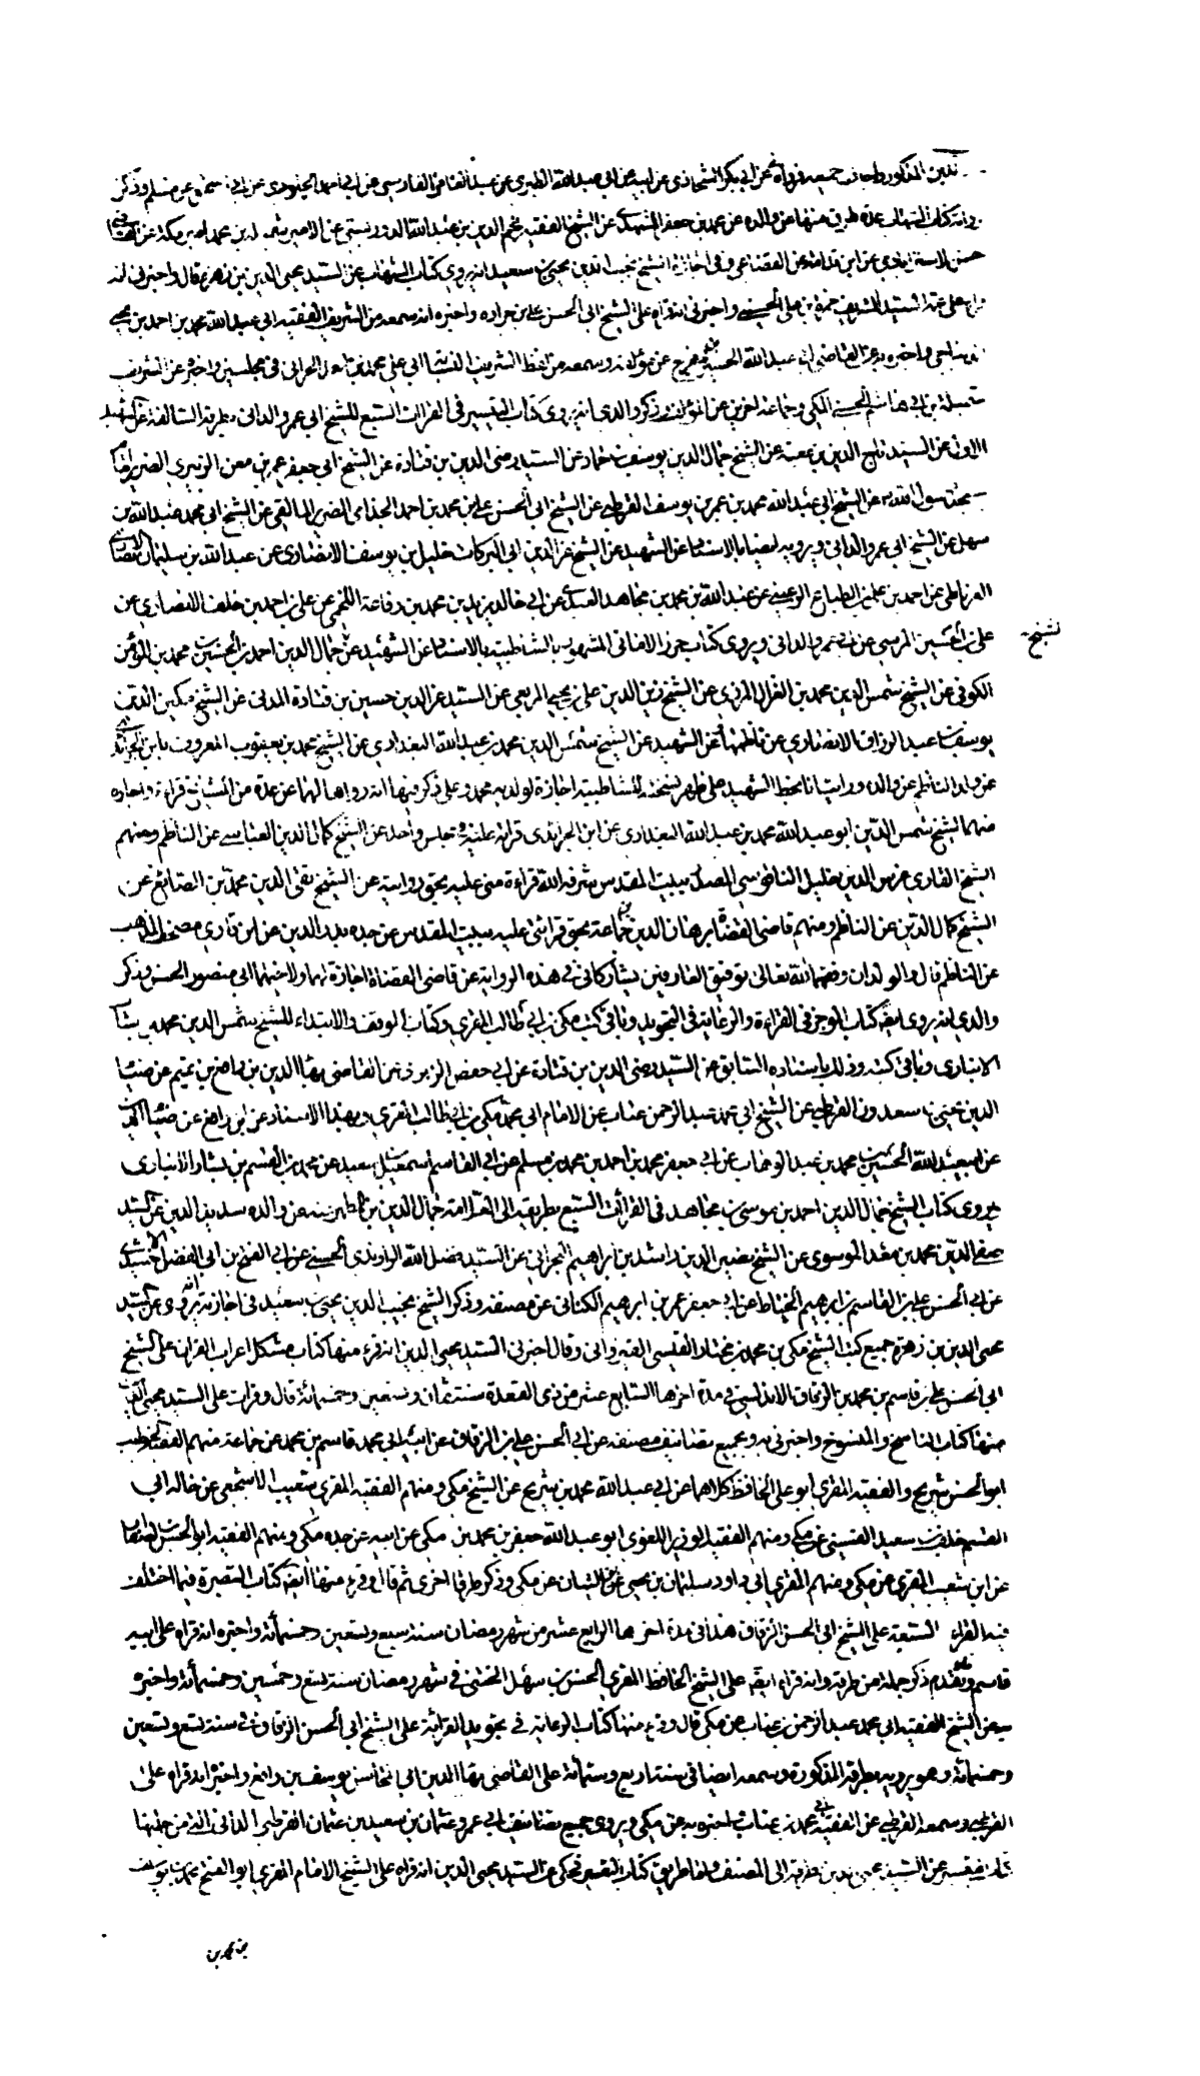 الدين المذكور واجازه جميعه ورواه عن ابي بكر الشحاذي عن ابيه عن ابي عبدالله الطبري عن عبدالغافر الفارسي عن ابي احمد الجلودي عن ابي عن مسلم وذكر
كتاب الشهاب عدة طرق منها عن والده عن محمد بن جعفر المشهدي عن الشيخ الفقيه نجم الدين بن عبدالله الدوريستي عن الامير بن محمد امير مكة عن القاضي
حسن الاسترابادي عن ابن قدامة عن القضاعي وفي اجازة الشيخ نجيب الدين يحيى بن سعيد انه يروي كتاب الشهاب عن السيد محيي الدين بن زهرة قال واخبرني انه
السيد الشريف حمزة بن علي الحسيني واخبرني انه قراه على الشيخ ابي الحسن علي بن جرادة واخبره انه سمعه من الشريف الفقيه ابي عبدالله محمد بن احمد بن يحيى
واخبره به عن القاضي ابي عبدالله الحسين بن مفرج عن مؤلفه وسمعه من لفظ الشريف النسابة ابي علي محمد بن اسعد الحراني في مجلسين واخبره عن الشريف
بن ابي هاشم الحسني المكي وجماعة اخرين عن المؤلف وذكر والدي انه يروي كتاب التيسير في القراات السبع للشيخ ابي عمرو الداني بطريقه السالفة عن الشهيد
الاول عن السيد تاج الدين بن معية عن الشيخ جمال الدين يوسف بن حماد عن السيد رضي الدين بن قتادة عن الشيخ ابي حفص عمر بن معن الزبيري الضرير امام
مسجد رسول الله عن الشيخ ابي عبدالله محمد بن عمر بن يوسف القرطبي عن الشيخ ابي الحسن علي بن محمد بن احمد الجذامي الضرير المالقي عن الشيخ ابي محمد عبدالله بن
سهل عن الشيخ ابي عمرو الداني ويرويه ايضا بالاسناد عن الشهيد عن الشيخ عز الدين ابي البركات خليل بن يوسف الانصاري عن عبدالله بن سليمان الانصاري
الغرناطي عن احمد بن علي بن الطباع الرعيني عن عبدالله بن محمد بن مجاهد العبدي عن ابي خالد يزيد بن محمد بن رفاعة اللخمي عن علي بن احمد بن خلف الانصاري عن
علي بن الحسين المرسي عن ابي عمرو الداني ويروي كتاب حرز الاماني المشهور بالشاطبية بالاسناد عن الشهيد عن الشيخ جمال الدين احمد بن الحسين بن محمد بن المؤمن
الشيخ
الكوفي عن الشيخ شمس الدين محمد بن الغزال المضري عن الشيخ زين الدين علي بن يحيى المربعي عن السيد عز الدين حسين بن قتادة المدني عن الشيخ مكين الدين
يوسف بن عبد الرزاق الانصاري عن ناظمها وعن الشهيد عن الشيخ شمس الدين محمد بن عبدالله البغدادي عن الشيخ محمد بن يعقوب المعروف بابن الجرائدي
عن ولد الناظم عن والده ورايت انا بخط الشهيد على ظهر نسخة للشاطبية اجازة لولديه محمد وعلي ذكر فيها انه رواها لهما عن عدة من المشايخ قراءة واجازة
منهم الشيخ شمس الدين ابو عبدالله محمد بن عبدالله البغدادي عن ابن الجرائدي قراة عليه في مجلس واحد عن الشيخ كمال الدين العباسي عن الناظم ومنهم
الشيخ القاري غرس الدين خليل الناقوسي المصدر ببيت المقدس شرفه الله قراءة مني عليه بحق روايته عن الشيخ تقي الدين محمد بن الصائغ عن
الشيخ كمال الدين عن الناظم ومنهم قاضي القضاة برهان الدين بن جماعة بحق قرائتي عليه ببيت المقدس عن جده بدر الدين عن ابن قاري مصحف الذهب
عن الناظم قال والولدان وفقهما الله تعالى بتوفيق العارفين يشاركاني في هذه الرواية عن قاضي القضاة اجازة لهما ولاخيهما ابي منصور الحسن وذكر
والدي انه يروي ايضا كتاب الموجز في القراءة والرعاية في التجويد وباقي كتب مكي بن ابي طالب المقري وكتاب الوقف والابتداء للشيخ شمس الدين محمد بن بشار
الانباري وباقي كتبه وذلك باسناده السابق عن السيد رضي الدين بن قتادة عن ابي حفص الزبيري عن القاضي بهاء الدين بن رافع بن تميم عن ضياء
الدين يحيى بن سعدون القرطبي عن الشيخ ابي محمد عبد الرحمن عتاب عن الامام ابي محمد مكي بن ابي طالب المقري وبهذا الاسناد عن ابن رافع عن ضياء الدين
عن ابي عبدالله الحسين بن محمد بن عبد الوهاب عن ابي جعفر محمد بن احمد بن محمد بن مسلم عن ابي القاسم اسمعيل بن سعيد عن محمد بن القسم بن بشار الانباري
ويروي كتاب الشيخ جمال الدين احمد بن موسى بن مجاهد في القراات السبع بطريقه الى العلامة جمال الدين بن المطهر عنه عن والده سديد الدين عن السيد
صفي الدين محمد بن معد الموسوي عن الشيخ نصير الدين راشد بن ابراهيم البحراني عن السيد فضل الله الراوندي الحسني عن ابي الفتح بن ابي الفضل الاخشيدي
عن ابي الحسن علي بن القاسم بن ابراهيم الخياط عن ابي حفص عمر بن ابراهيم الكتاني عن مصنفه وذكر الشيخ نجيب الدين يحيى بن سعيد في اجازته انه يروي عن السيد
محيي الدين بن زهرة جميع كتب الشيخ مكي بن محمد بن مختار القيسي القيرواني وقال اخبرني السيد محيي الدين انه قرء منها كتاب مشكل اعراب القران على الشيخ
ابي الحسن علي بن قاسم بن محمد بن الزقاق الاندلسي في مدة اخرها السابع عشر من ذي القعدة سنة ثمان وتسعين وخمسمائة قال وقرات على السيد محيي الدين
منها كتاب الناسخ والمنسوخ واخبرني به وبجميع تصانيف مصنفه عن ابي الحسن علي بن الزقاق عن ابيه ابي محمد قاسم بن محمد عن جماعة منهم الفقيه الخطيب
ابو الحسن شريح والفقيه المقري ابو علي الحافظ كلاهما عن ابي عبدالله محمد بن شريح عن الشيخ مكي ومنهم الفقيه المقري شعيب الاشجعي عن خاله ابي
القسم خلف بن سعيد القيسي عن مكي ومنهم الفقيه الوزير اللغوي ابو عبدالله جعفر بن محمد بن مكي عن ابيه عن جده مكي ومنهم الفقيه ابو الحسن
عن ابن شعيب المقري عن مكي ومنهم المقري ابي داود سليمان بن يحيى عن ابن البيان عن مكي وذكر طرقا اخرى ثم قال وقرء منها ايضا كتاب التبصرة فيما اختلف
فيه القراء السبعة على الشيخ ابي الحسن الزقاق هذا في مدة اخرها الرابع عشر من شهر رمضان سنة سبع وتسعين وخمسمائة واخبره انه قراه على ابيه
قاسم وتقدم ذكر جملة من طرقه وانه قراه ايضا على الشيخ الحافظ المقري الحسن بن سهل الخشني في شهر رمضان سنة تسع وخمسين وخمسمائة واخبره
به عن الشيخ الفقيه ابي محمد عبد الرحمن بن عتاب عن مكي قال وقرء منها كتاب الرعاية في تجويد القرائة على الشيخ ابي الحسن الزقاق في سنة تسع وتسعين
وخمسمائة وهو يرويه بطرقه المذكورة وسمعه ايضا في سنة اربع وستمائة على القاضي بهاء الدين ابي المحاسن يوسف بن رافع واخبره انه قراه على
القرطبي وسمعه القرطبي عن الفقيه ابي محمد بن عتاب اخبره به عن مكي ويروي جميع تصانيف ابي عمرو عثمان بن سعيد بن عثمان القرطبي الداني التي من جملتها
عن السيد محيي الدين بطرقه الى المصنف واما طريق كتاب التيسير فحكى عن السيد محيي الدين انه قراه على الشيخ الامام المقري ابو الفتح محمد بن يوسف
بن محمد بن